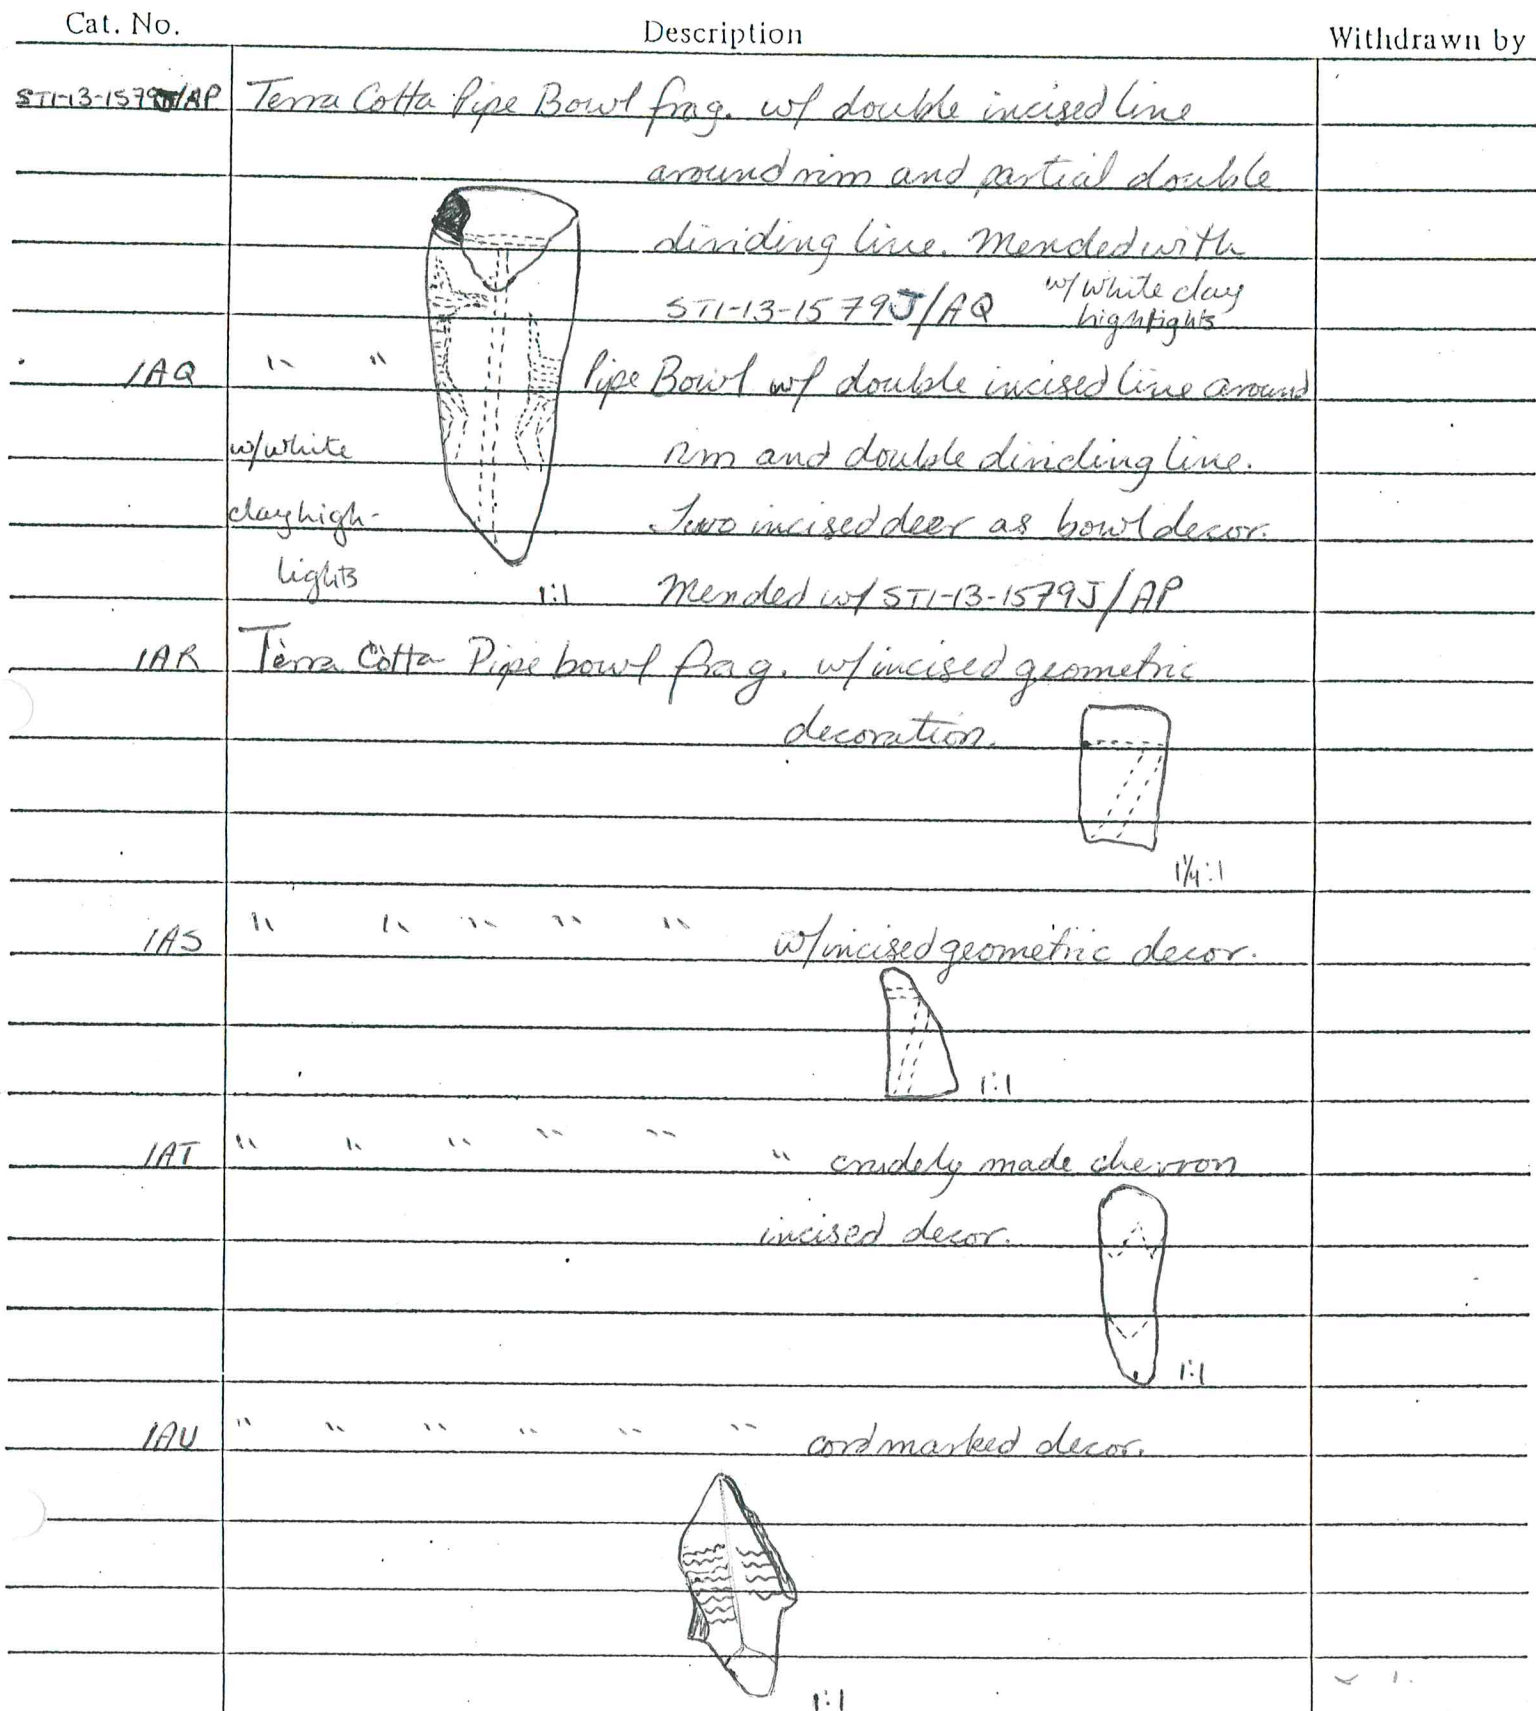 Cat. No. Description Withdrawn by
ST1-13-1579J/AP Terra Cotta Pipe Bowl frag. w/ double incised line
around rim and partial double
dividing line. Mended with
ST1-13-1579J/AQ w/ white clay
highlights
/AQ " " Pipe Bowl w/ double incised line around
w/ white rim and double dividing line.
clay high- Two incised deer as bowl decor.
lights 1:1 Mended w/ ST1-13-1579J/AP
/AR Terra Cotta Pipe bowl frag. w/ incised geometric
decoration.
1¼:1
/AS " " " " " w/ incised geometric decor.
1:1
/AT " " " " " " crudely made chevron
incised decor.
1:1
/AU " " " " " " cord marked decor.
1:1